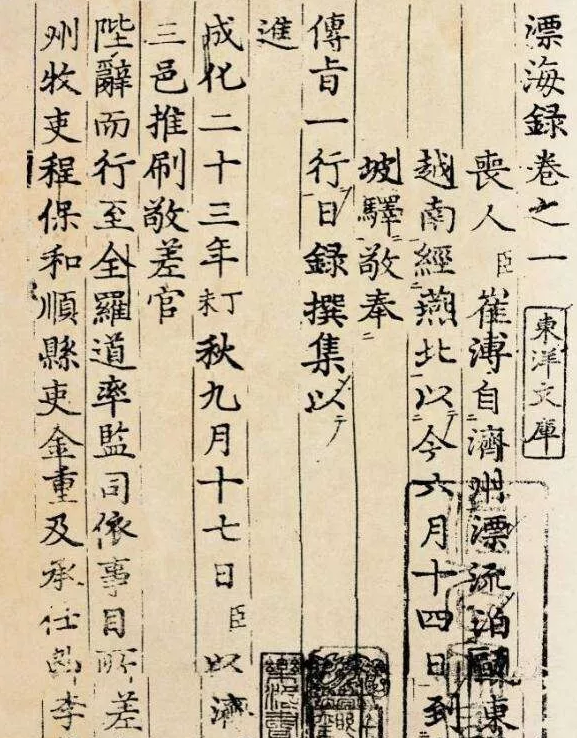 漂海録卷之一
東洋文庫
喪人臣崔溥自濟州漂流泊甌東
越南經燕北以今六月十四日到
坡驛敬奉
傳旨一行日録撰集以
進
成化二十三年丁未秋九月十七日臣以濟
三邑推刷敬差官
陛辭而行至全羅道率監司依事目所差
州牧吏程保和順縣吏金重及承仕郎李